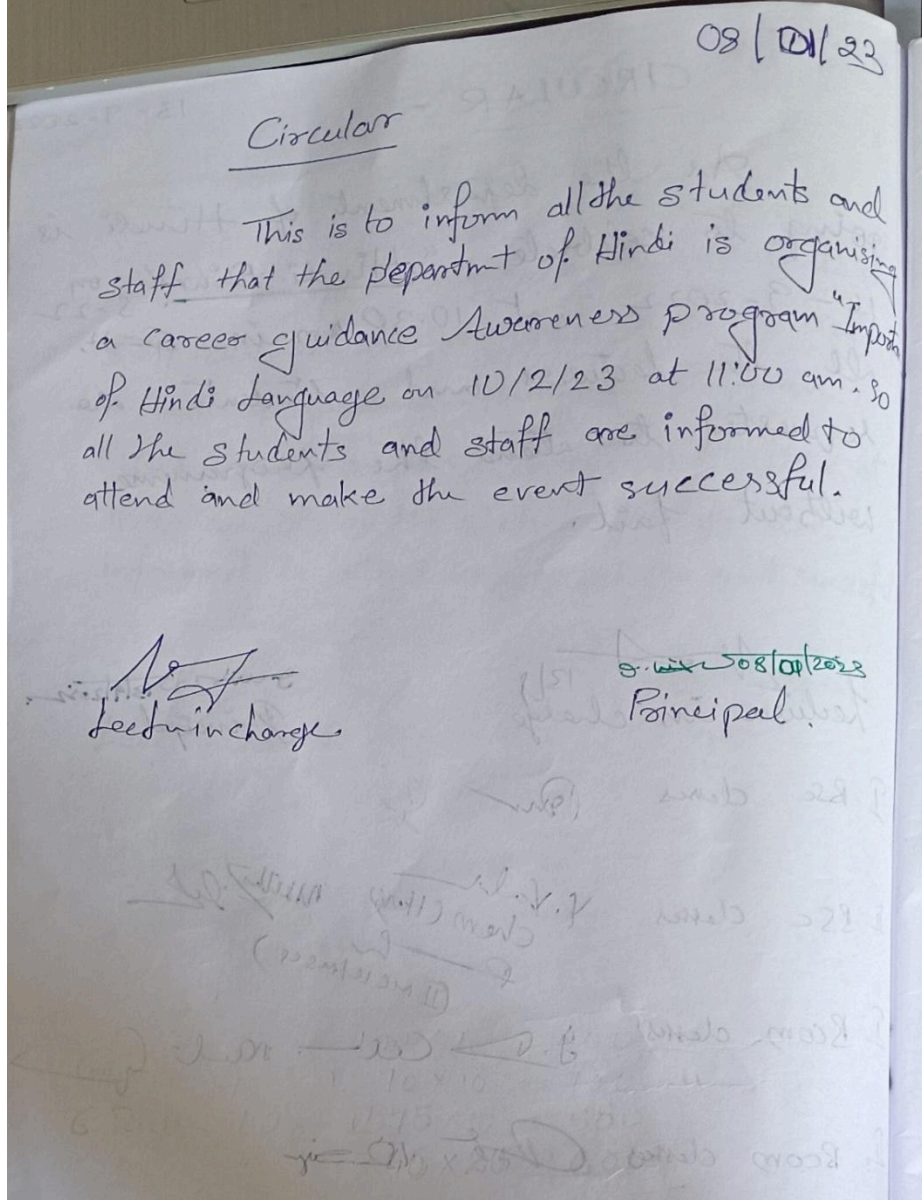 08/01/23
Circular
This is to inform all the students and
staff that the department of Hindi is organising
a career guidance Awareness program "Import
of Hindi Language on 10/2/23 at 11:00 am. So
all the students and staff are informed to
attend and make the event successful.
08/01/2023
Lectuincharge
Principal.